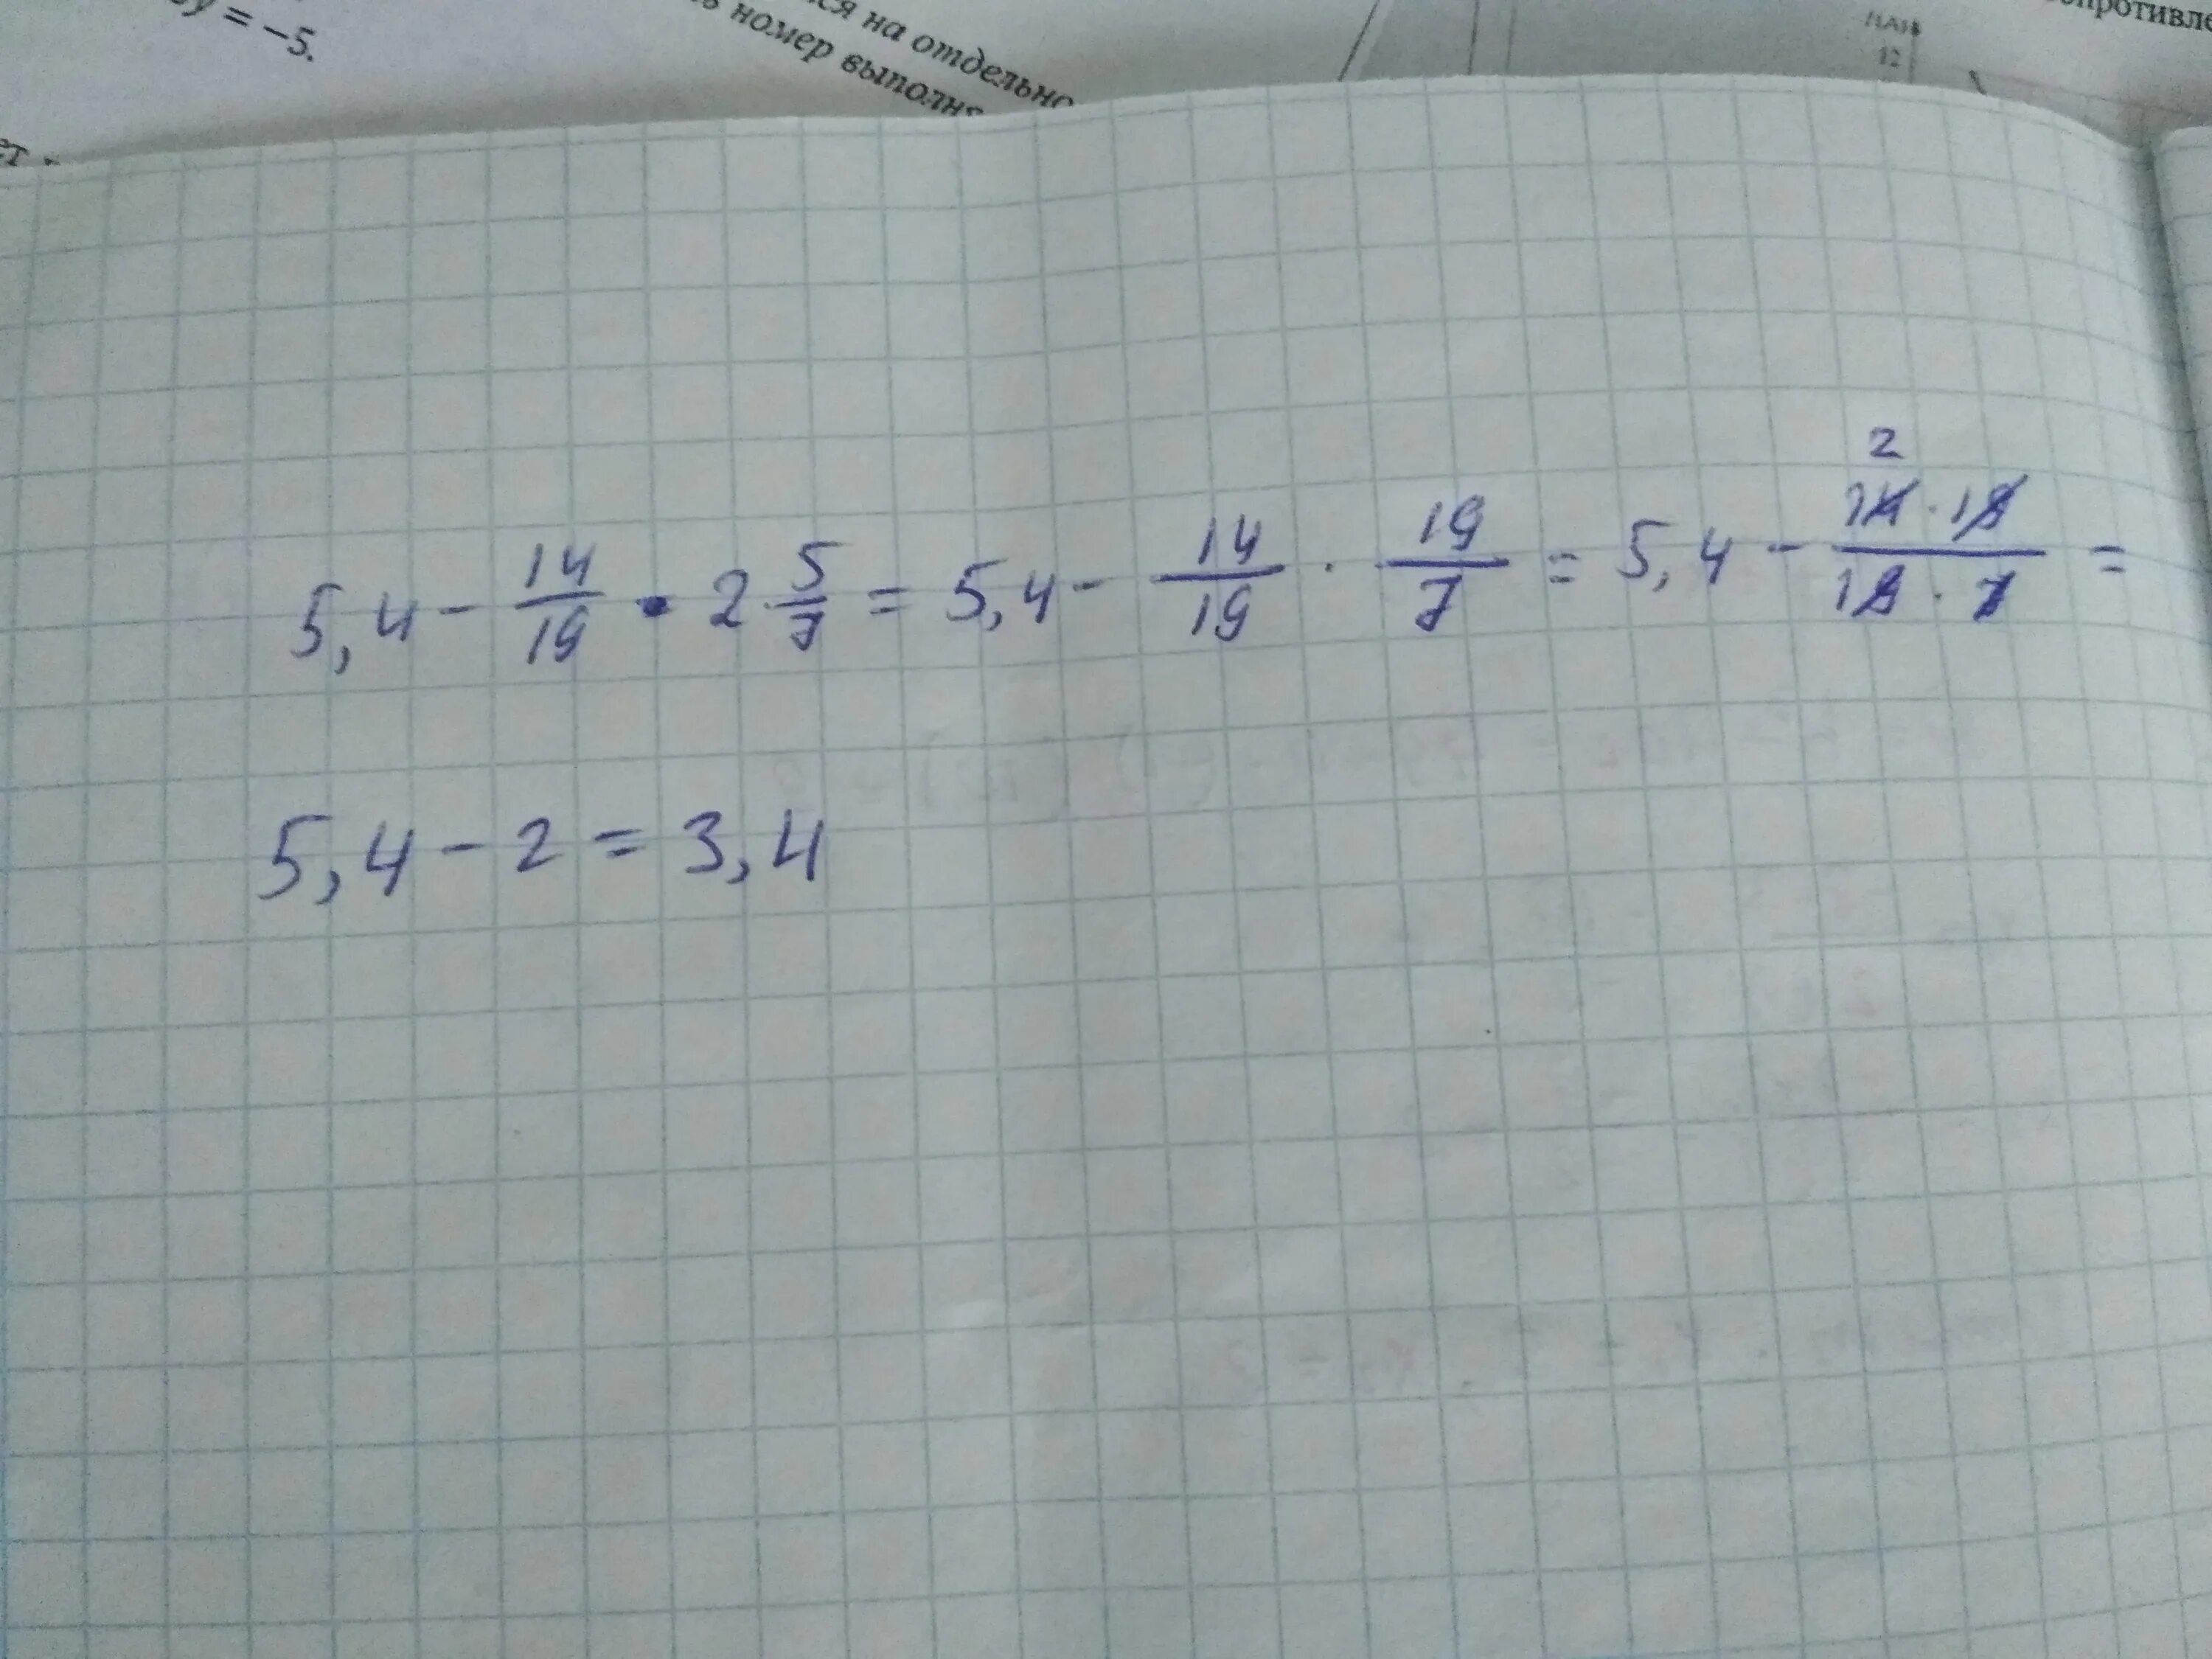 y = −5.
на отдельно
номер выполня
12
5,4 − 14/19 · 2 5/7 = 5,4 − 14/19 · 19/7 = 5,4 − 14 · 19/19 · 7 =
2
5,4 − 2 = 3,4